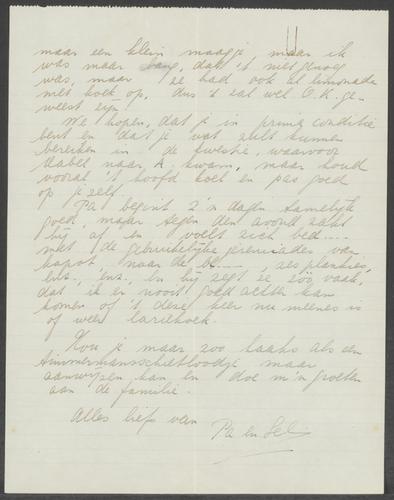 maar een klein maagje, maar ik
was maar bang, dat 't niet genoeg
was, maar ze had ook al limonade
met koek op, dus 't zal wel O.K. ge-
weest zijn.
We hopen, dat je in prima conditie
bent en dat je wat zult kunnen
bereiken in de kwestie, waarvoor
naar A. kwam, maar houd
vooral 't hoofd koel en pas goed
op je zelf.
Pa begint z'n dagen tamelijk
goed, maar tegen den avond zakt
hij af en voelt zich
met de gebruikelijke jeremiades van
kapot, naar de , zes plankjes,
enz., enz., en hij zegt ze zóó vaak,
dat ik er nooit goed achter kan
komen of 't deze keer nu meenes is
of weer lariekoek.
Hou je maar zoo haaks als een
timmermansschietloodje maar
aanwijzen kan en doe m'n groeten
aan de familie.
Alles liefs van
Pa en